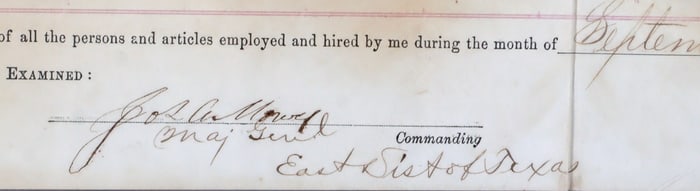 of all the persons and articles employed and hired by me during the month of Septem
EXAMINED :
Jos A Mower
Maj Genl
Commanding
East Dist of Texas